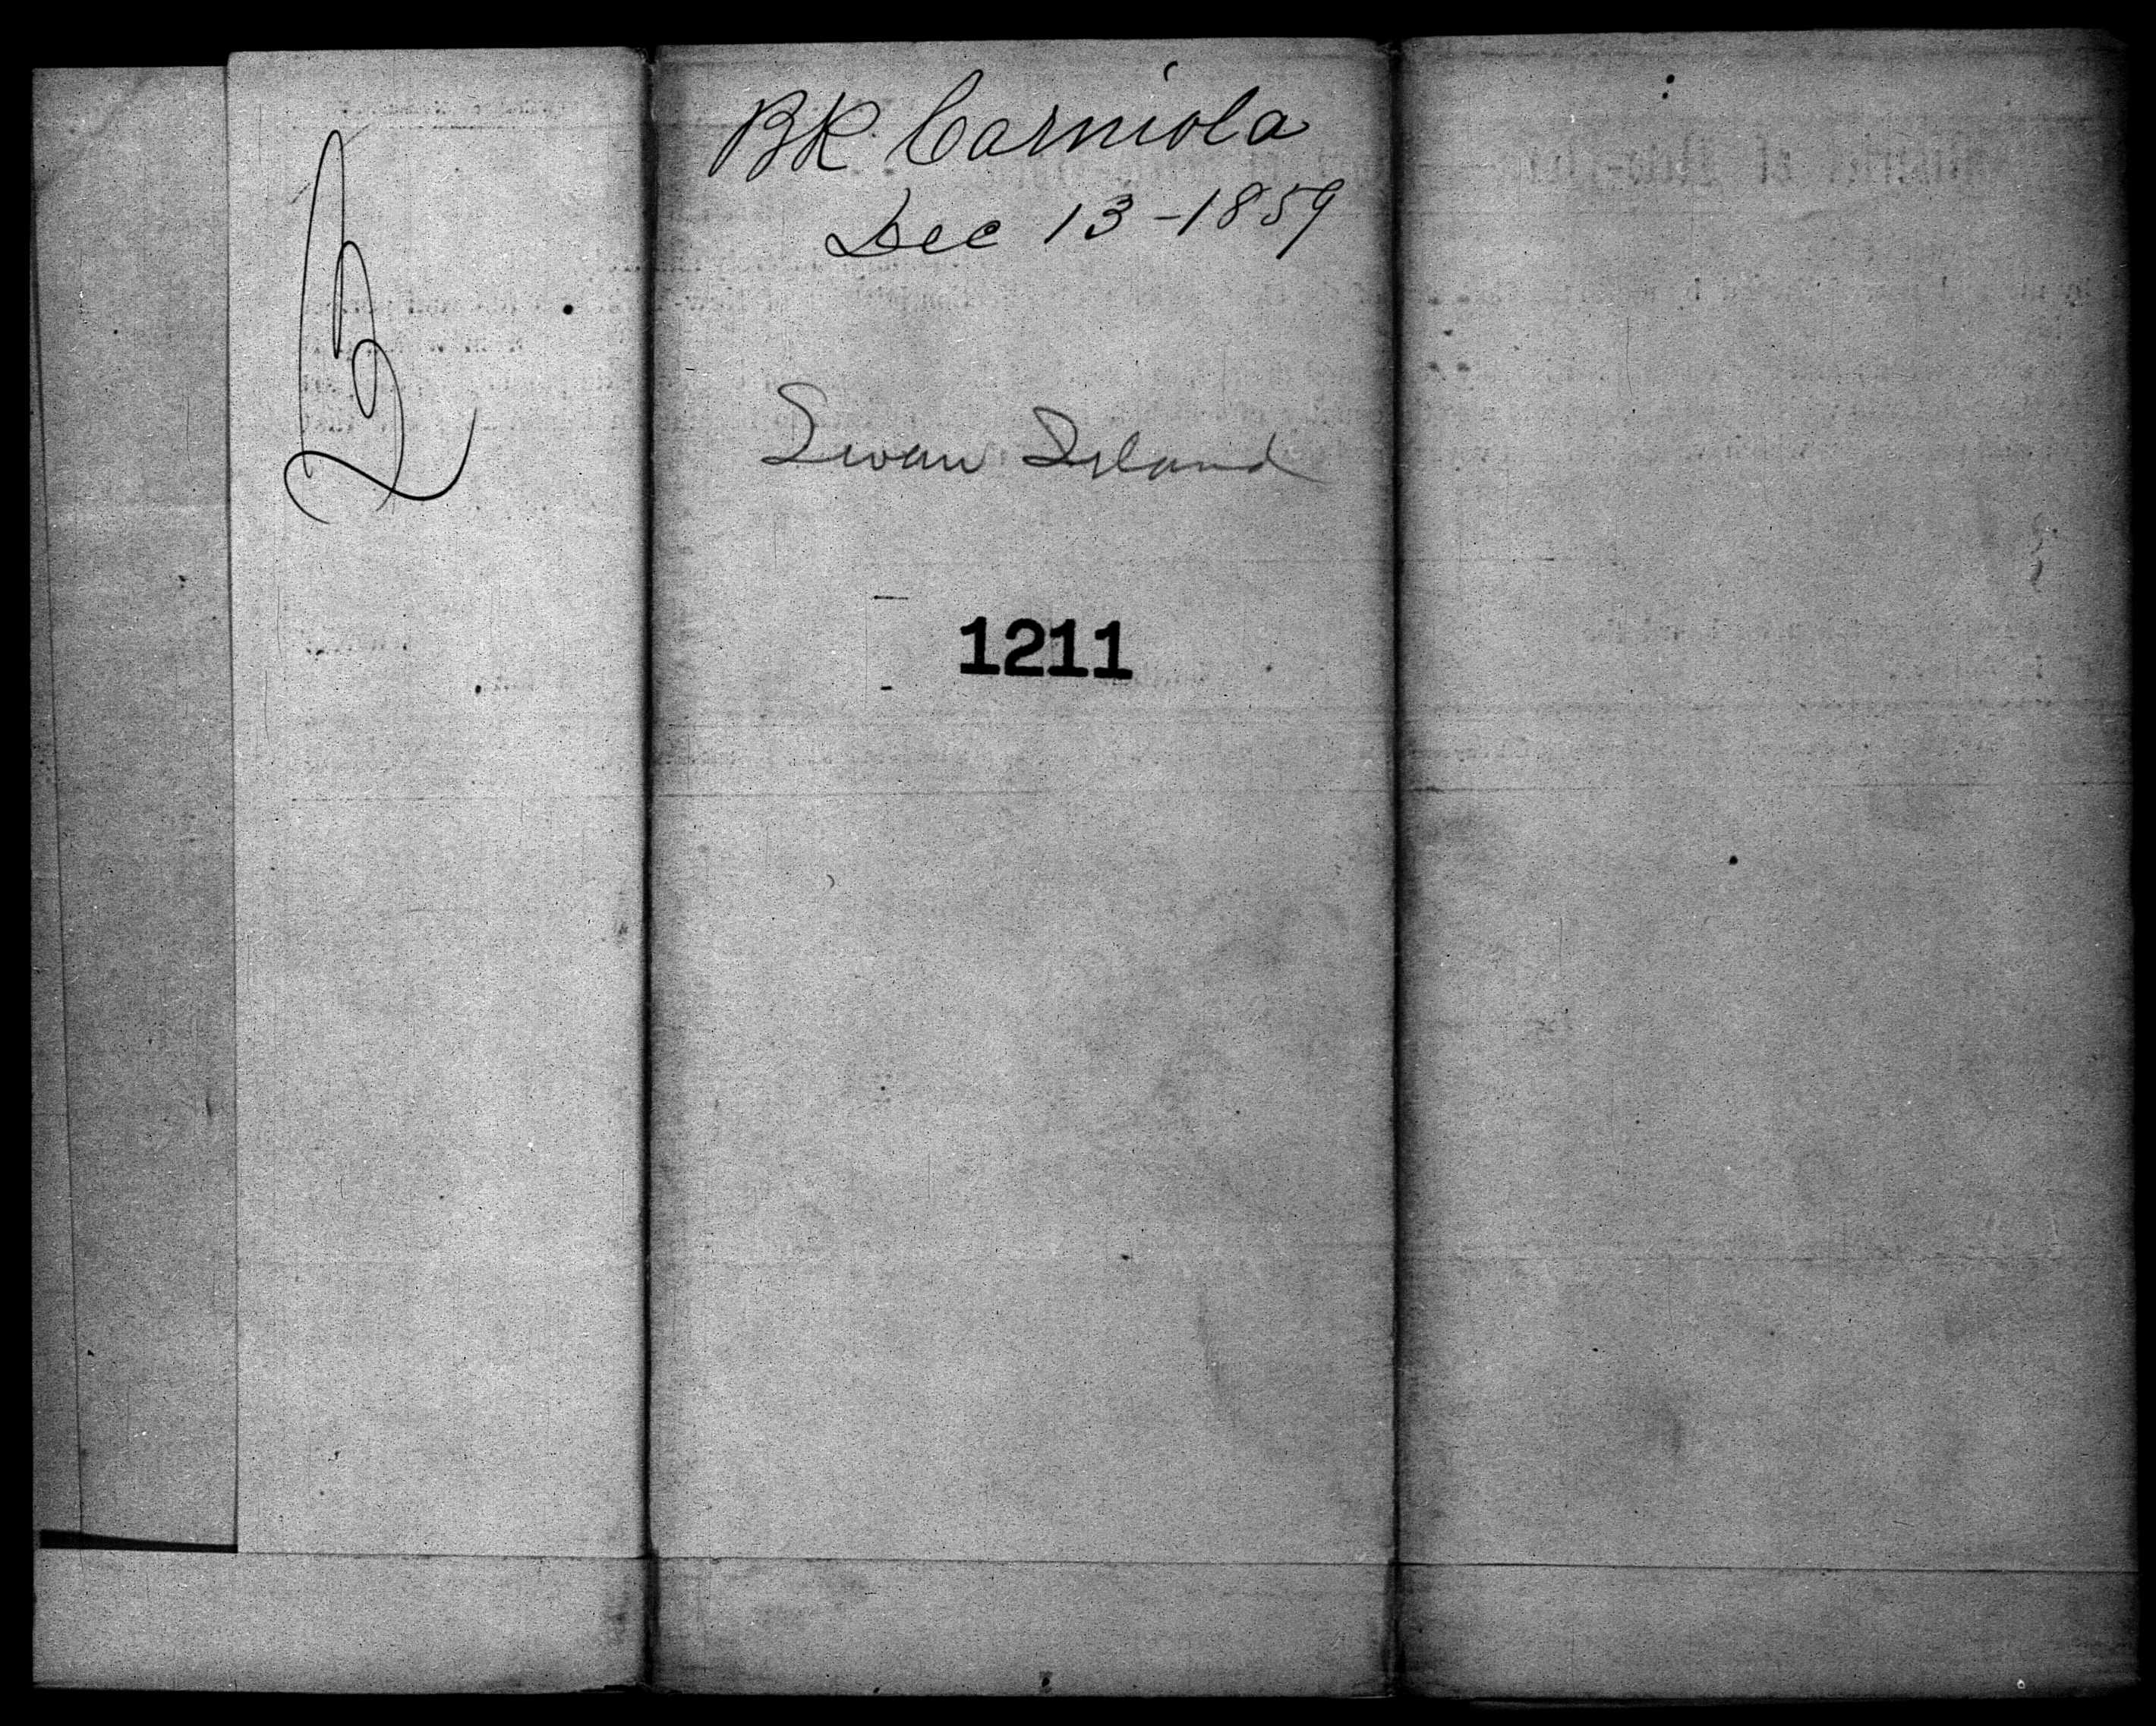 B
BK Carniola
Dec 13-1859
Swan Island
1211